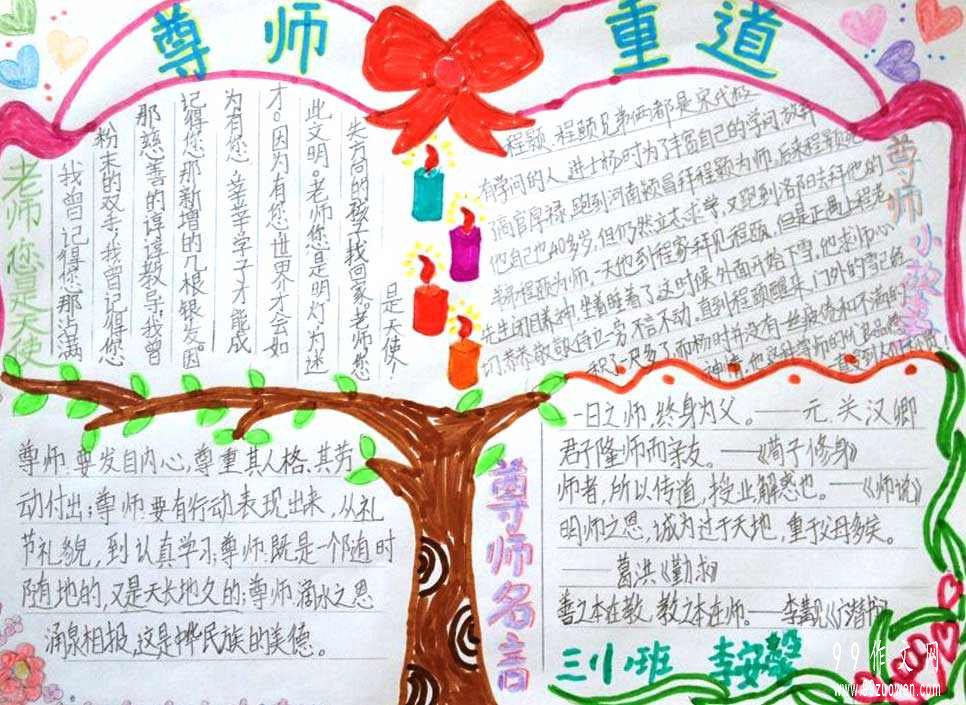 尊师重道
老师您是天使
我曾记得您那沾满
粉末的双手,我曾记得您
那慈善的谆谆教导,我曾
记得您那新增的几根银发。因
为有您,莘莘学子才能成
才。因为有您,世界才会如
此文明。老师您是明灯,为迷
失方向的孩子找回家。老师您
是天使!
尊师小故事
程颢、程颐兄弟俩都是宋代极
有学问的人。进士杨时为了丰富自己的学问,放弃
了高官厚禄,跑到河南颍昌拜程颢为师,后来程颢死
他自己也40多岁,但仍然立志求学,又跑到洛阳去拜他的
弟弟程颐为师。一天他到程家拜见程颐,但是正遇上程老
先生闭目养神,坐着睡着了这时候外面开始下雪。他求师心
切恭恭敬敬侍立一旁,不言不动,直到程颐醒来,门外的雪已
积了一尺多了而杨时并没有一丝疲倦和不满的
神情,他这种尊师的优良品德
尊师要发自内心,尊重其人格、其劳
动付出;尊师要有行动表现出来,从礼
节礼貌,到认真学习;尊师既是一个随时
随地的,又是天长地久的;尊师滴水之恩
涌泉相报,这是中华民族的美德。
尊师名言
一日之师,终身为父。——元.关汉卿
君子隆师而亲友。——《荀子修身》
师者,所以传道,授业解惑也。——《师说》
明师之恩,诚为过于天地,重于父母多矣。
——葛洪《勤求》
善之本在教,教之本在师。——李觏《广潜书》
三(1)班 李安馨
99作文网
www.99zuowen.com